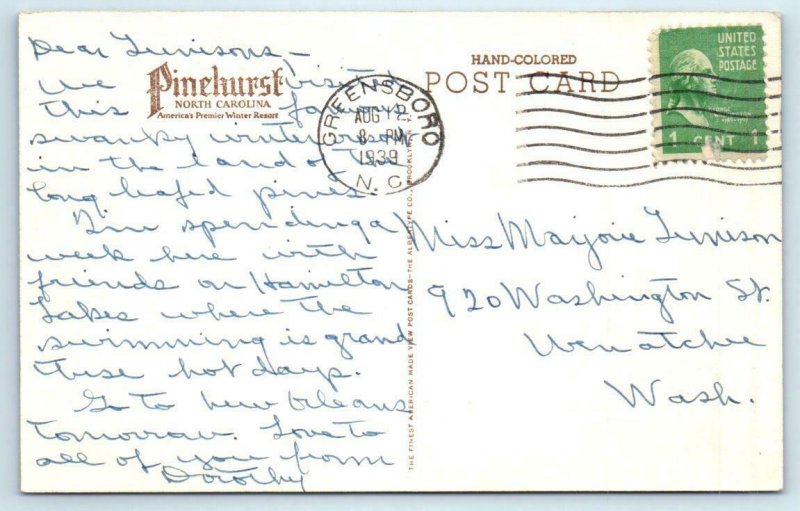 Dear Tunisons –
We visited
this famous
swanky winter resort
in the land of the
long leafed pines.
I'm spending a
week here with
friends on Hamilton
Lakes where the
swimming is grand
these hot days.
Go to New Orleans
tomorrow. Love to
all of you from
Dorothy
Pinehurst
NORTH CAROLINA
America's Premier Winter Resort
HAND-COLORED
POST CARD
GREENSBORO
AUG 12
8 PM
1939
N. C.
UNITED
STATES
POSTAGE
1 CENT 1
THE FINEST AMERICAN MADE VIEW POST CARDS—THE ALBERTYPE CO., BROOKLYN, N. Y.
Miss Marjorie Tunison
920 Washington St.
Wenatchee
Wash.